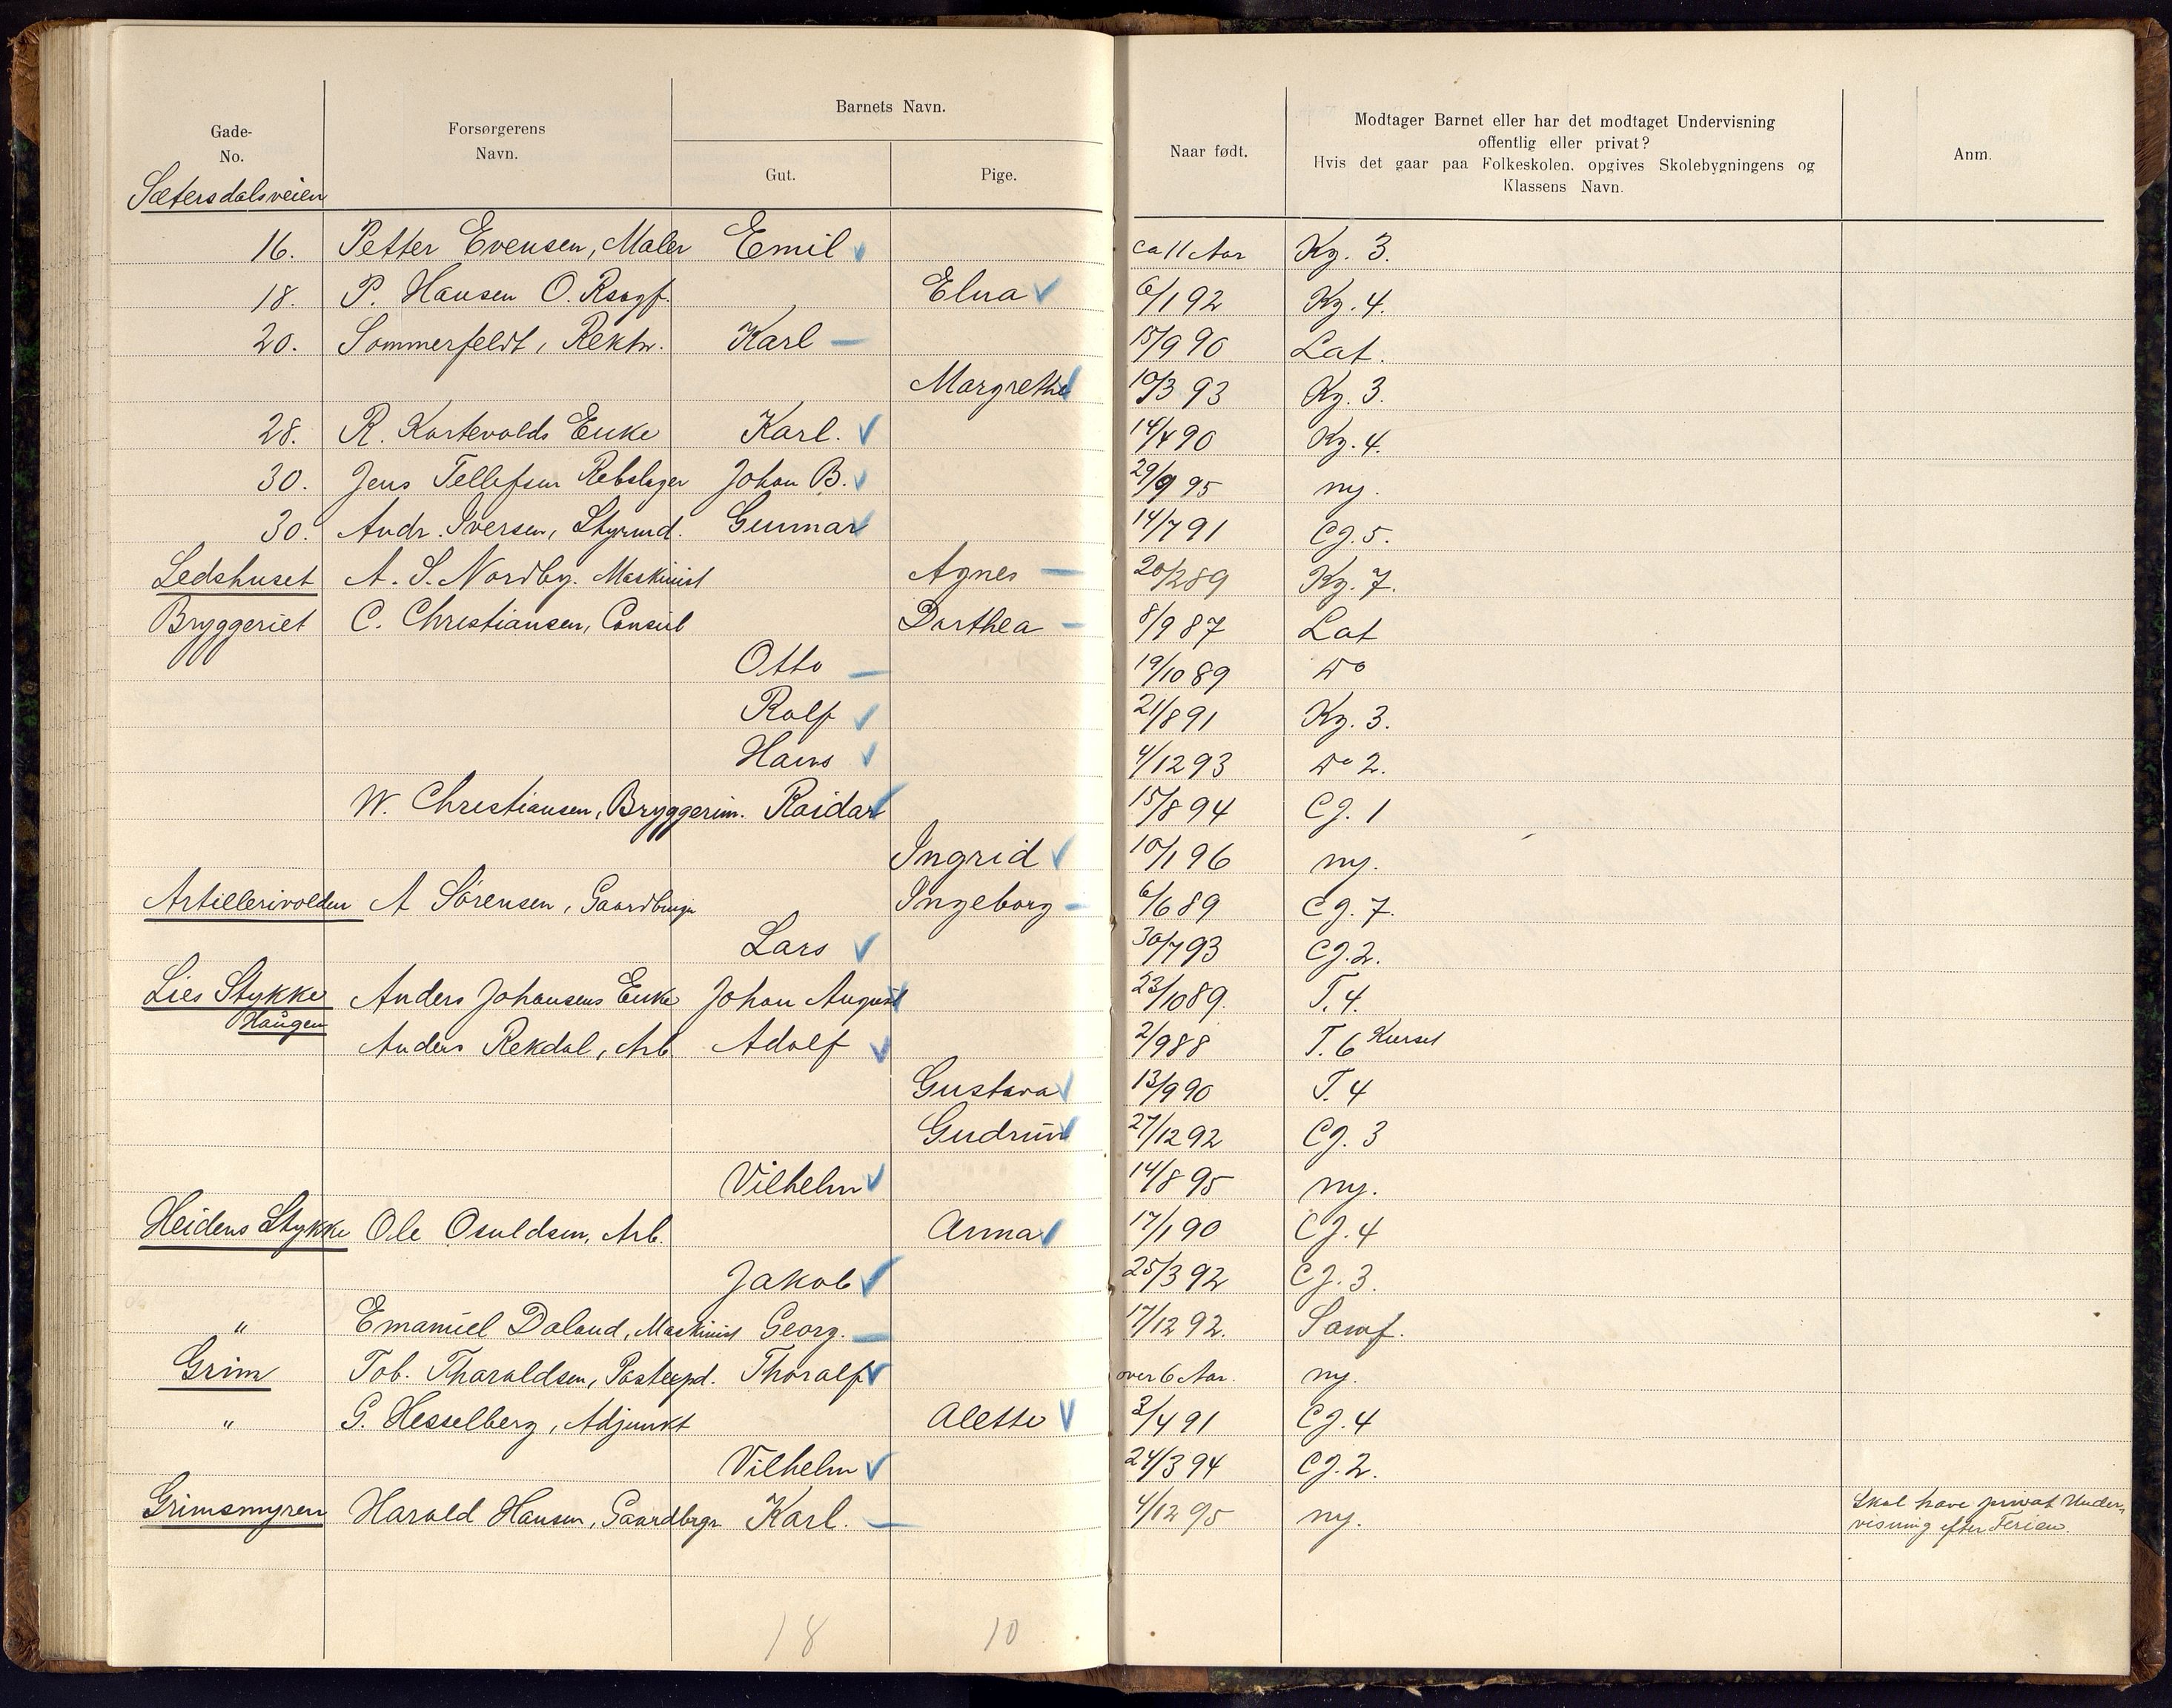 Gade-
No.
Forsørgerens
Navn.
Barnets Navn.
Gut.
Pige.
Naar født.
Modtager Barnet eller har det modtaget Undervisning
offentlig eller privat?
Hvis det gaar paa Folkeskolen, opgives Skolebygningens og
Klassens Navn.
Anm.
Sætersdalsveien
16. Petter Evensen, Maler Emil ca 11 Aar Kg. 3.
18. P. Hansen O. Rsagf. Elna 6/1 92 Kg. 4.
20. Sommerfeldt, Rektor. Karl 15/9 90 Lat.
Margrethe 10/3 93 Kg. 3.
28. R. Kortevolds Enke Karl. 14/4 90 Kg. 4.
30. Jens Tellefsen Rebslager Johan B. 29/9 95 ny.
30. Andr. Iversen, Styrmd. Gunnar 14/7 91 Cg. 5.
Ledshuset A. S. Nordby. Maskinist Agnes 20/2 89 Kg. 7.
Bryggeriet C. Christiansen, Consul Dorthea 8/9 87 Lat
Otto 19/10 89 Do
Rolf 21/8 91 Kg. 3.
Hans 4/12 93 Do 2.
W. Christiansen, Bryggerim. Raidar 15/8 94 Cg. 1
Ingrid 10/1 96 ny.
Artillerivolden A Sörensen, Gaardbruger Ingeborg 6/6 89 Cg. 7.
Lars 30/7 93 Cg. 2.
Lies Stykke Anders Johansens Enke Johan August 23/10 89. T. 4.
Haugen
Anders Rekdal, Arb. Adolf 2/9 88 T. 6 Kurset
Gustava 13/9 90 T. 4
Gudrun 27/12 92 Cg. 3
Vilhelm 14/8 95 ny.
Heidens Stykke Ole Osuldsen, Arb. Anna 17/1 90 Cg. 4
Jakob 25/3 92 Cg. 3.
" Emanuel Daland, Maskinist Georg. 17/12 92. Samf.
Grim Tob. Tharaldsen, Postexpd. Thoralf over 6 Aar. ny.
" G. Hesselberg, Adjunkt Alette 3/4 91 Cg. 4
Vilhelm 24/3 94 Cg. 2.
Grimsmyren Harald Hansen, Gaardbrgr. Karl. 4/12 95 ny. Skal have privat Under-
visning efter Ferien.
18 10